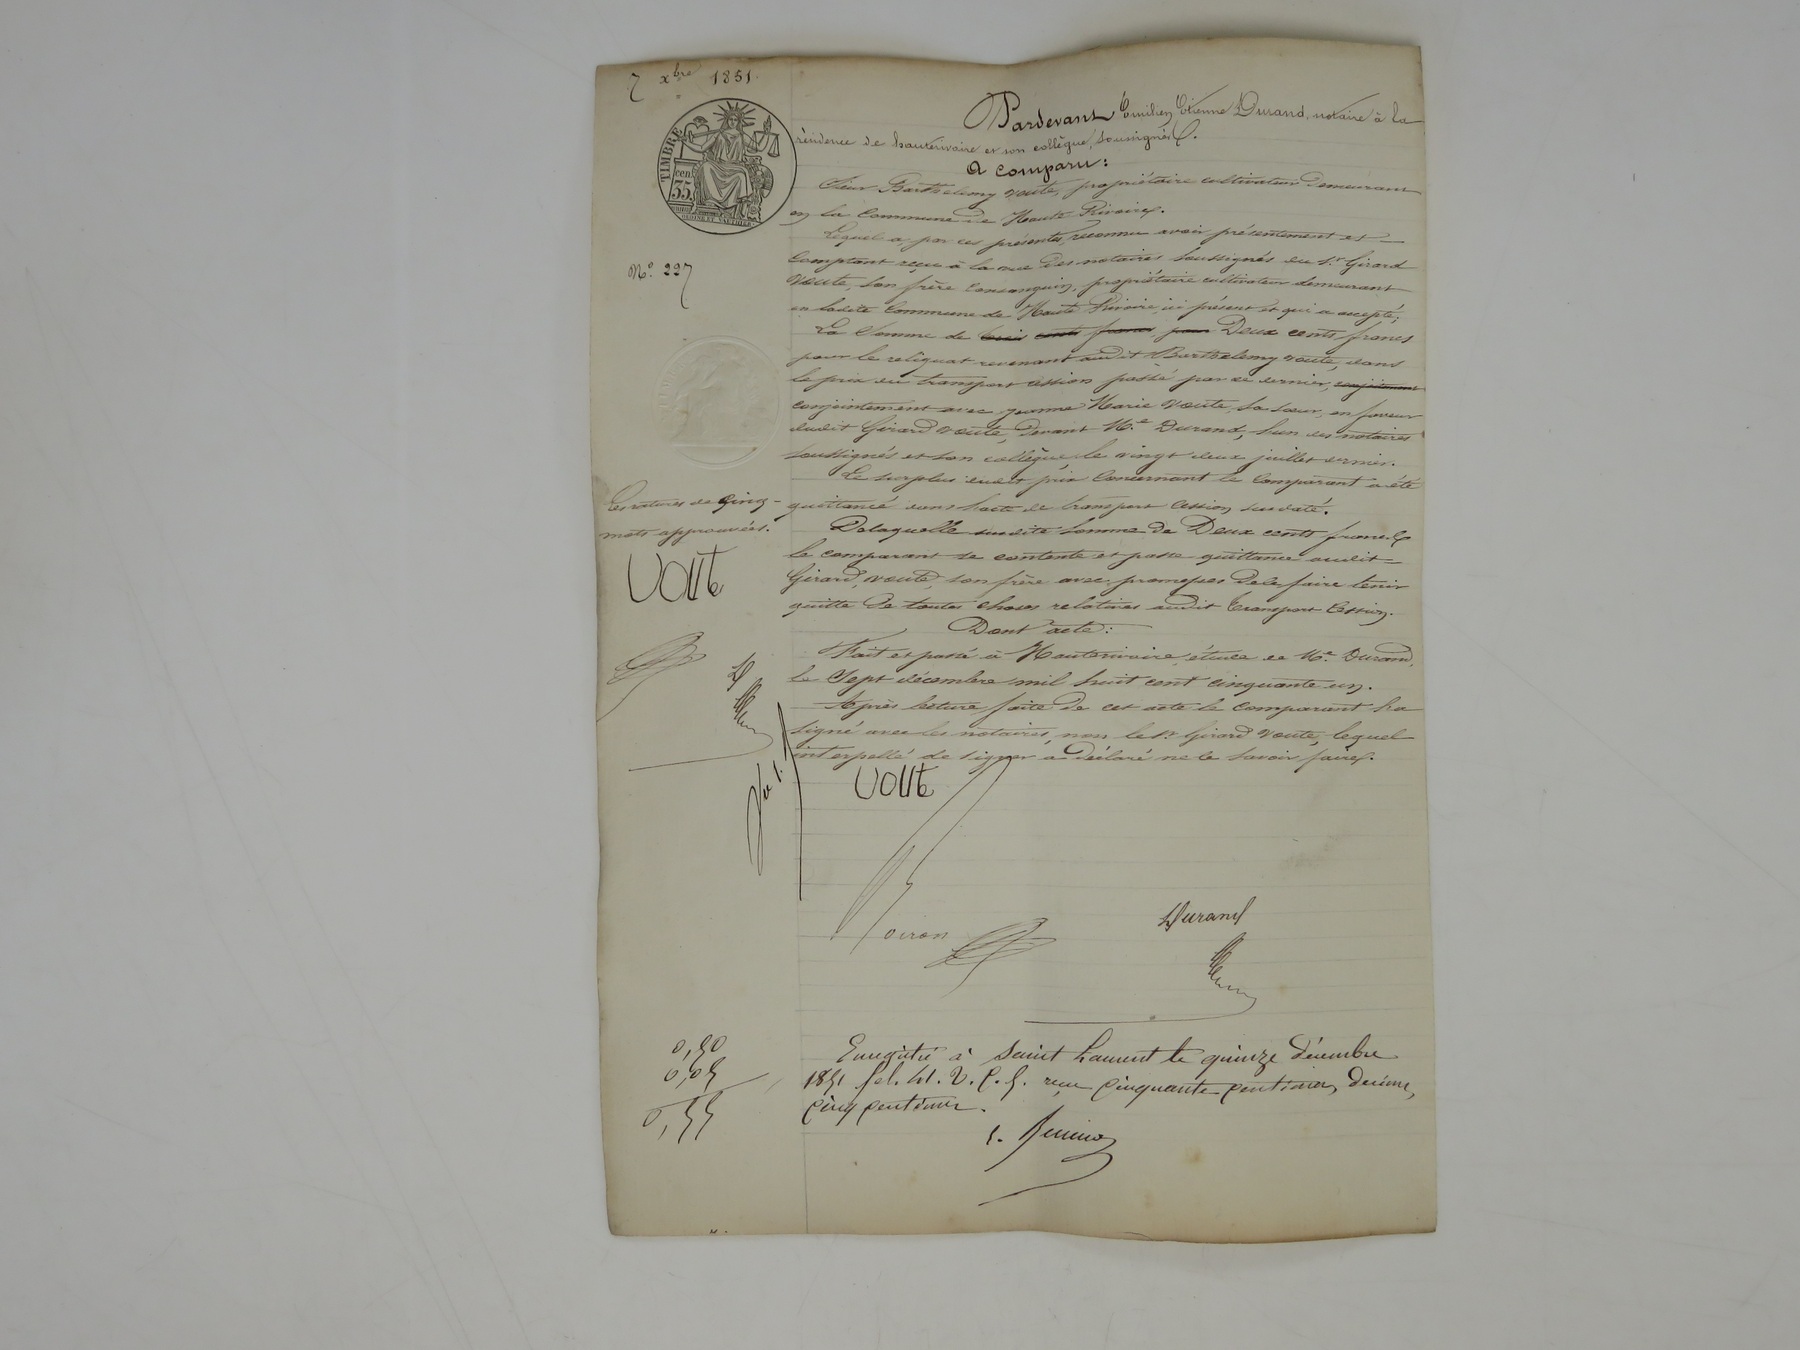 7 xbre 1851.
TIMBRE
cen.
35.
Nº 227
Pardevant Emilien Etienne Durand, notaire à la
résidence de hauterivoire et son collègue, soussignés.
A comparu:
Sieur Barthelemy Voute, propriétaire cultivateur demeurant
en la Commune de Haute Rivoire.
Lequel a par ces présentes, reconnu avoir présentement et
Comptant reçu à la vue des notaires soussignés du Sr. Girard
Voute, son frère Consanguin, propriétaire cultivateur demeurant
en ladite Commune de Haute Rivoire, ici présent et qui a accepté;
La Somme de trois cents francs pour Deux cents francs
pour le reliquat revenant audit Barthelemy Voute, dans
le prix du transport cession passé par ce dernier, conjointement
conjointement avec jeanne Marie Voute, sa soeur, en faveur
dudit Girard Voute, devant Me. Durand, l'un des notaires
soussignés et son collègue le vingt deux juillet dernier.
Le surplus dudit prix Concernant le Comparant a été
quittancé dans l'acte de transport Cession susdaté.
De laquelle susdite Somme de Deux cents francs
le comparant se contente et passe quittance audit
Girard, Voute, son frère avec promesses de le faire tenir
quitte de toutes choses relatives audit Transport Cession.
Dont acte:
Fait et passé à Hauterivoire, étude de Me. Durand,
le Sept décembre mil huit cent cinquante un.
Après lecture faite de cet acte le comparant l'a
signé avec les notaires, non le Sr. Girard Voute, lequel
interpellé de signer a déclaré ne le savoir faire.
Ratures de Cinq
mots approuvées.
VOUTE
D
VOUTE
Durand
0,50
0,05
0,55
Enregistré à Saint Laurent le quinze décembre
1851 fol. 41. V. C. 5. reçu cinquante centimes, décime,
Cinq centimes.